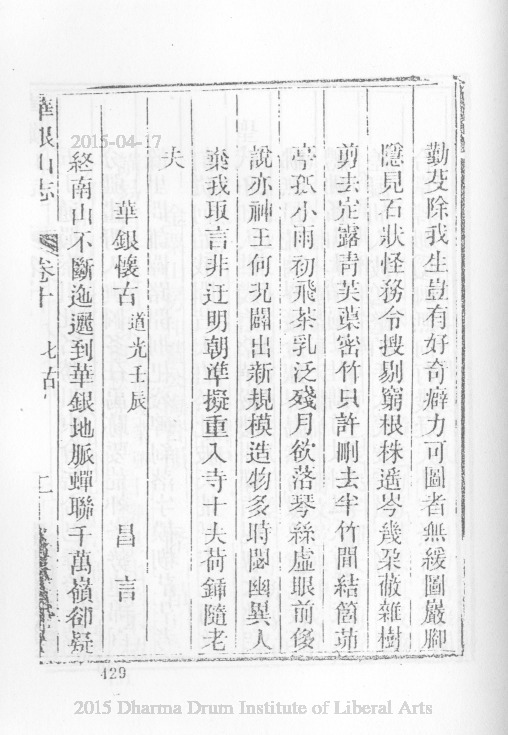 勤芟除我生豈有好奇癖力可圖者無緩圖巖腳
隱見石狀怪務令搜剔窮根株遙岑幾朶蔽雜樹
剪去定露靑芙蕖密竹只許刪去半竹間結箇茆
亭孤小雨初飛茶乳泛殘月欲落琴絲虛眼前後
說亦神王何况闢出新規模造物多時閟幽異人
棄我取言非迂明朝準擬重入寺十夫荷鍤隨老
夫
華銀懷古 道光壬辰 昌言
終南山不斷迤邐到華銀地脈蟬聯千萬嶺卻疑
華銀山志 卷十 七古 二
429
2015-04-17
2015 Dharma Drum Institute of Liberal Arts